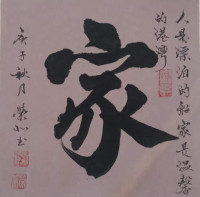 人是漂泊的船家是温馨
的港灣
家
庚子秋月